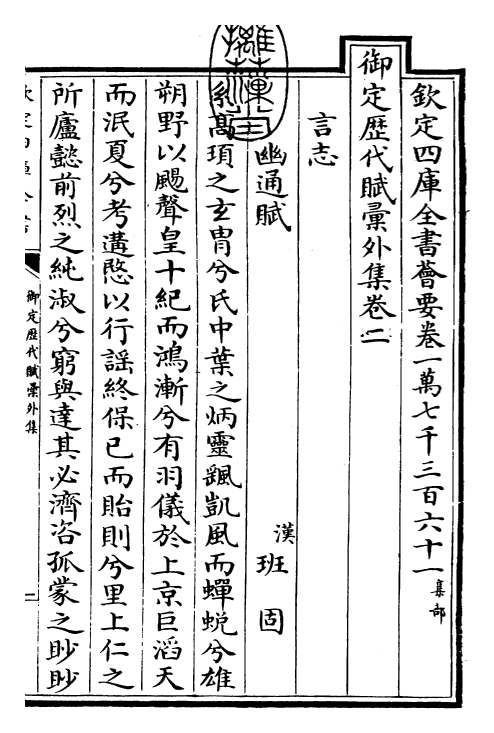 欽定四庫全書薈要卷一萬七千三百六十一集部
御定歴代賦彙外集卷二
言志
幽通賦
漢班固
系髙頊之玄冑兮氏中葉之炳靈颻凱風而蟬蛻兮雄
朔野以颺聲皇十紀而鴻漸兮有羽儀於上京巨滔天
而泯夏兮考遘愍以行謡終保己而貽則兮里上仁之
所廬懿前烈之純淑兮窮與達其必濟咨孤蒙之眇眇
欽定四庫全書
御定歴代賦彙外集
一